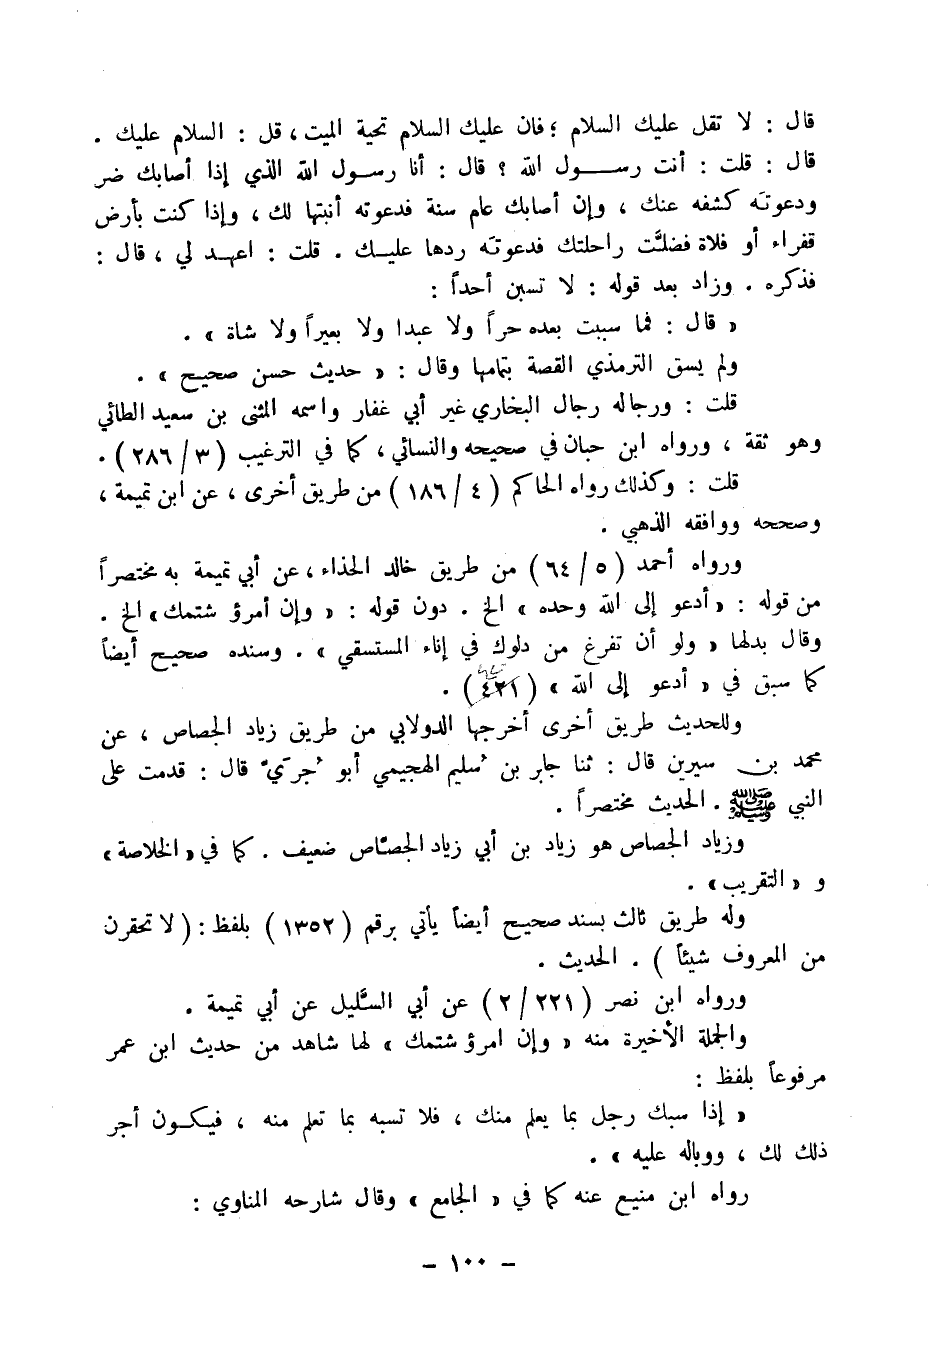 قال : لا تقل عليك السلام ؛ فان عليك السلام تحية الميت ، قل : السلام عليك .
قال : قلت : أنت رســـول الله ؟ قال : أنا رسـول الله الذي إذا أصابك ضر
ودعوتَه كشفه عنك ، وإن أصابك عام سنة فدعوته أنبتها لك ، وإذا كنت بأرض
قفراء أو فلاة فضلَّت راحلتك فدعوتَه ردها عليـك . قلت : اعهـد لي ، قال :
فذكره . وزاد بعد قوله : لا تسبن أحداً :
« قال : فما سببت بعده حراً ولا عبدا ولا بعيراً ولا شاة » .
ولم يسق الترمذي القصة بتمامها وقال : « حديث حسن صحيح » .
قلت : ورجاله رجال البخاري غير أبي غفار واسمه المثنى بن سعيد الطائي
وهو ثقة ، ورواه ابن حبان في صحيحه والنسائي ، كما في الترغيب ( ٣ / ٢٨٦ ) .
قلت : وكذلك رواه الحاكم ( ٤ / ١٨٦ ) من طريق أخرى ، عن ابن تميمة ،
وصححه ووافقه الذهبي .
ورواه أحمد ( ٥ / ٦٤ ) من طريق خالد الحذاء ، عن أبي تميمة به مختصراً
من قوله : « أدعو إلى الله وحده » الخ . دون قوله : « وإن أمرؤ شتمك » الخ .
وقال بدلها « ولو أن تفرغ من دلوك في إناء المستسقي » . وسنده صحيح أيضاً
كما سبق في « أدعو إلى الله » ( ٤٢١ ) .
وللحديث طريق أخرى أخرجها الدولابي من طريق زياد الجصاص ، عن
محمد بن سيرين قال : ثنا جابر بن سُليم الهجيمي أبو جُرَيّ قال : قدمت على
النبي ﷺ . الحديث مختصراً .
وزياد الجصاص هو زياد بن أبي زياد الجصّاص ضعيف . كما في « الخلاصة »
و « التقريب » .
وله طريق ثالث بسند صحيح أيضاً يأتي برقم ( ١٣٥٢ ) بلفظ : ( لا تحقرن
من المعروف شيئاً ) . الحديث .
ورواه ابن نصر ( ٢٢١ / ٢ ) عن أبي السَّليل عن أبي تميمة .
والجملة الأخيرة منه « وإن امرؤ شتمك » لها شاهد من حديث ابن عمر
مرفوعاً بلفظ :
« إذا سبك رجل بما يعلم منك ، فلا تسبه بما تعلم منه ، فيكـون أجر
ذلك لك ، ووباله عليه » .
رواه ابن منيع عنه كما في « الجامع » وقال شارحه المناوي :
- ١٠٠ -